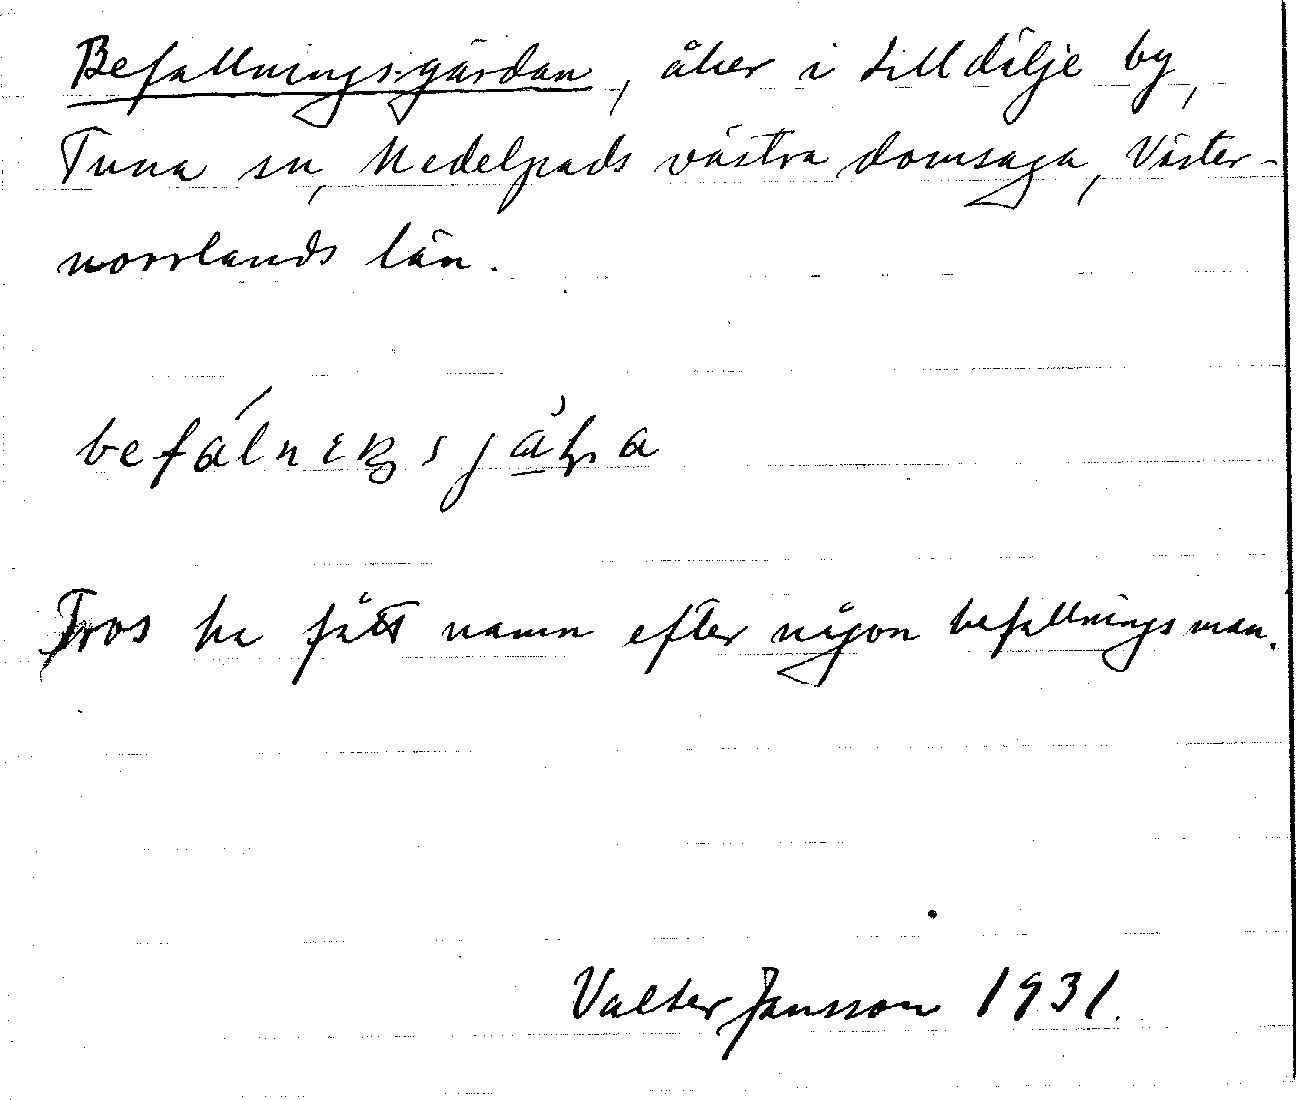 Befallningsgärdan, åker i Lilldälje by,
Tuna sn, Medelpads västra domsaga, Väster-
norrlands län.
Tros ha fått namn efter någon befallningsman.
Valter Jansson 1931.